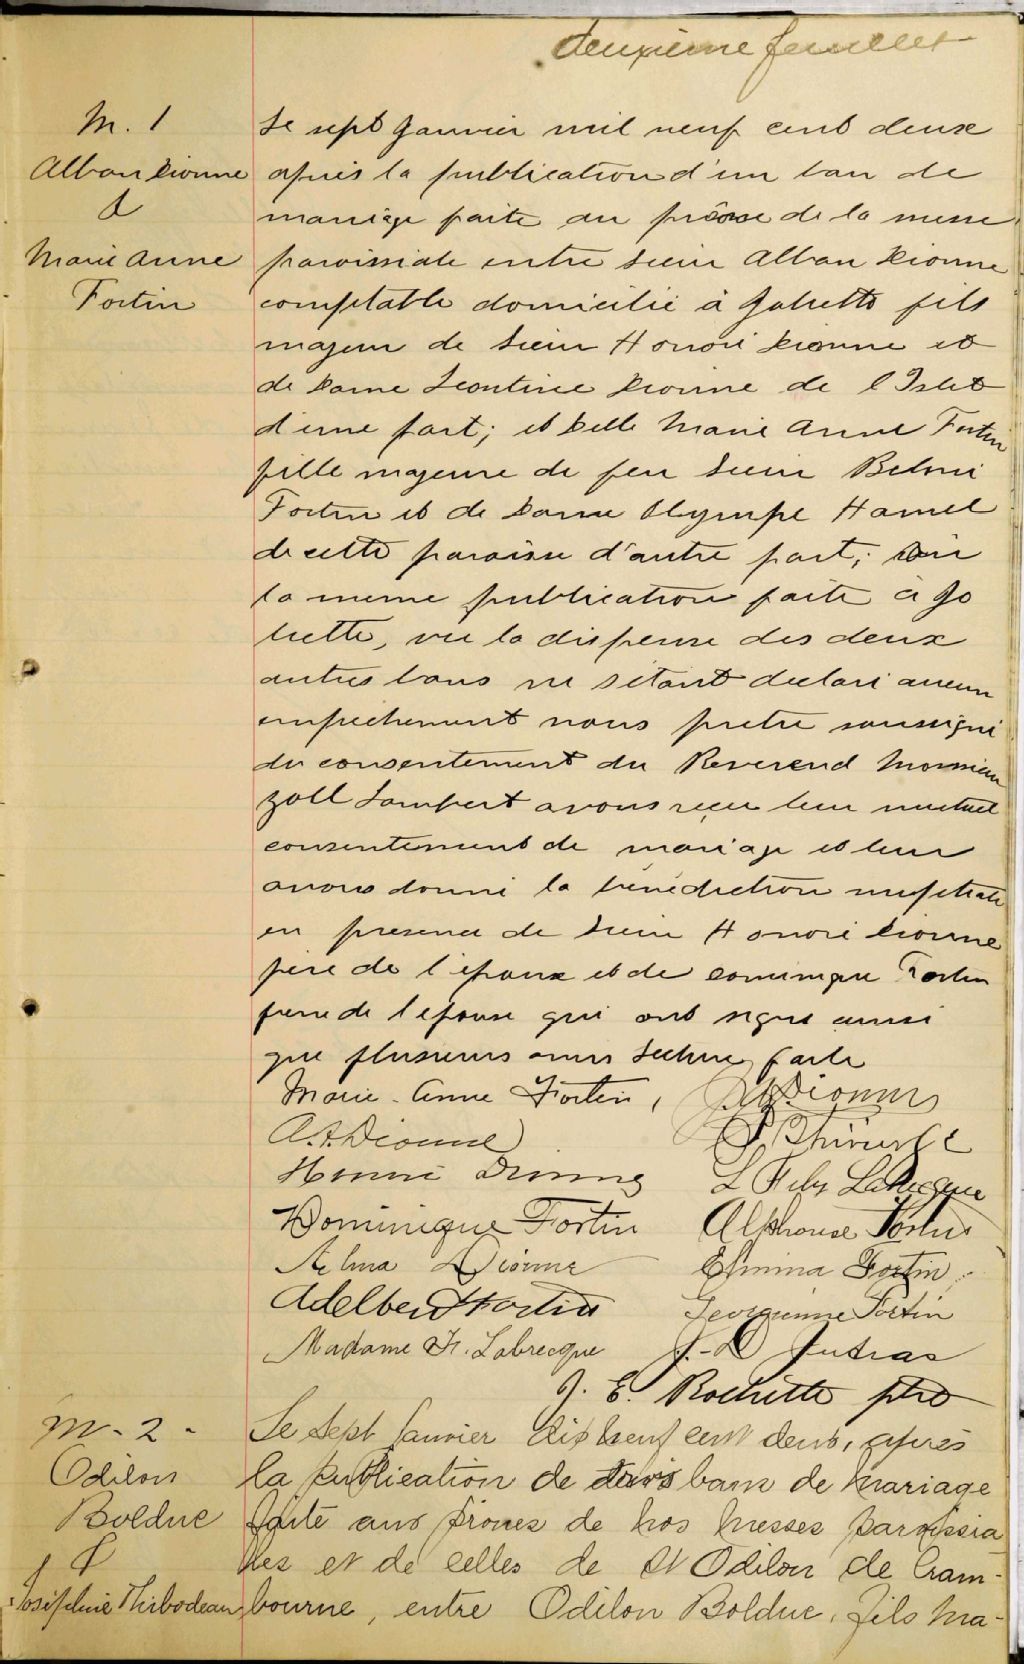 deuxième feuillet
M. 1
Alban Dionne
&
Marie Anne
Fortin
Le sept Janvier mil neuf cent deux
après la publication d'un ban de
mariage faite au prône de la messe
paroissiale entre Sieur Alban Dionne
comptable domicilié à Joliette fils
majeur de Sieur Honoré Dionne et
de Dame Léontine Dionne de l'Islet
d'une part; et Delle Marie Anne Fortin
fille majeure de feu Sieur Beloni
Fortin et de Dame Olympe Hamel
de cette paroisse d'autre part; vu
la meme publication faite à Jo
liette, vu la dispense des deux
autres bans ne s'étant déclaré aucun
empêchement nous prêtre soussigné
du consentement du Reverend Monsieur
Zoll Lambert avons reçu leur mutuel
consentement de mariage et leur
avons donné la bénédiction nuptiale
en presence de Sieur Honoré Dionne
père de l'époux et de Dominique Fortin
frère de l'épouse qui ont signé ainsi
que plusieurs amis lecture faite
Marie-Anne Fortin, Dionne
A. A. Dionne
Honoré Dionne L Felix LaBrecque
Dominique Fortin Alphonse Fortin
Alma Dionne Elmina Fortin
Adelbert Fortin Georgianne Fortin
Madame F. Labrecque J.-D Jutras
J. E. Rochette ptre
M-2-
Odilon
Bolduc
&
Joséphine Thibodeau
Le sept Janvier dix neuf cent deux, après
la publication de trois bans de mariage
faite aux prônes de nos messes paroissia
les et de celles de St Odilon de Cram-
bourne, entre Odilon Bolduc, fils ma-